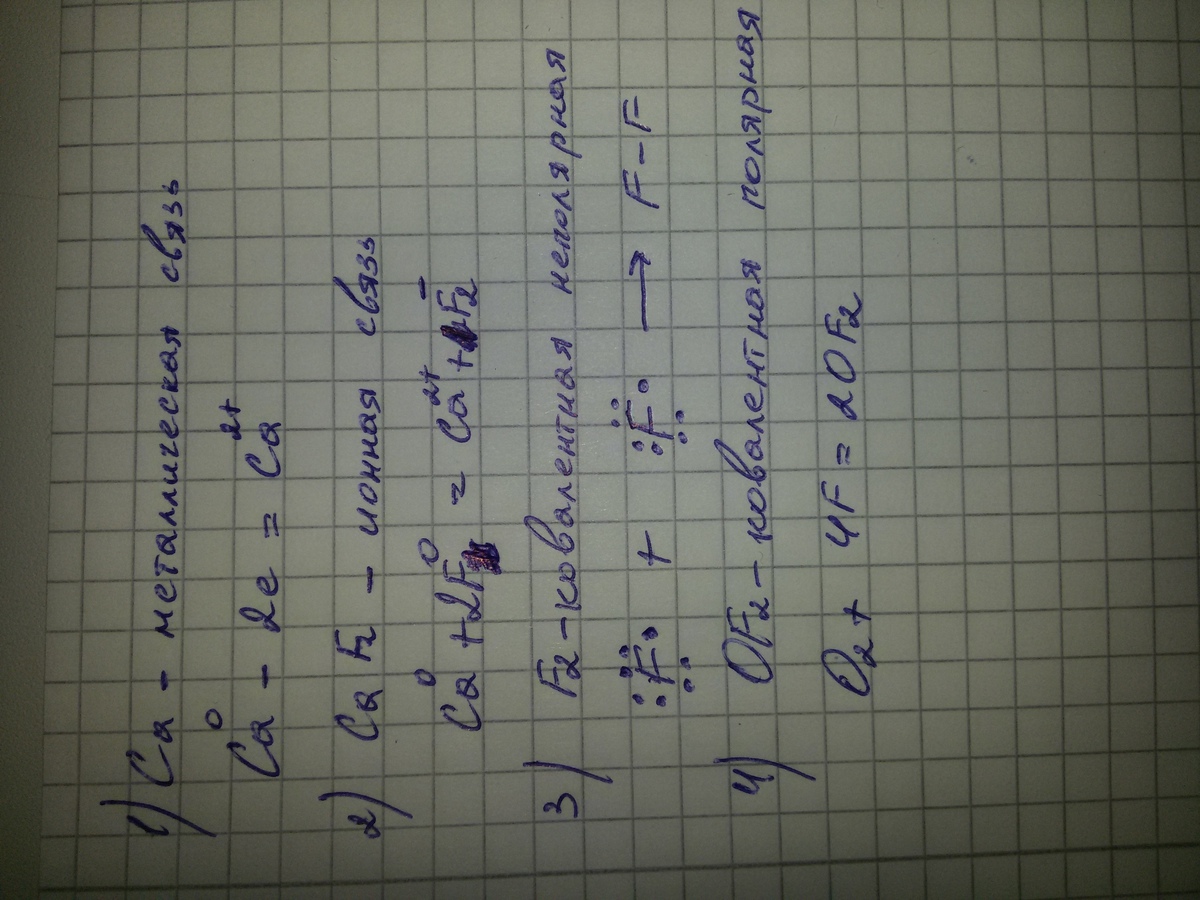 1) Ca - металлическая связь
Ca⁰ - 2e = Ca²⁺
2) CaF₂ - ионная связь
Ca⁰ + 2F⁰ = Ca²⁺ + F₂⁻
3) F₂ - ковалентная неполярная
:F̤̈• + :F̤̈• → F-F
4) OF₂ - ковалентная полярная
O₂ + 4F = 2OF₂